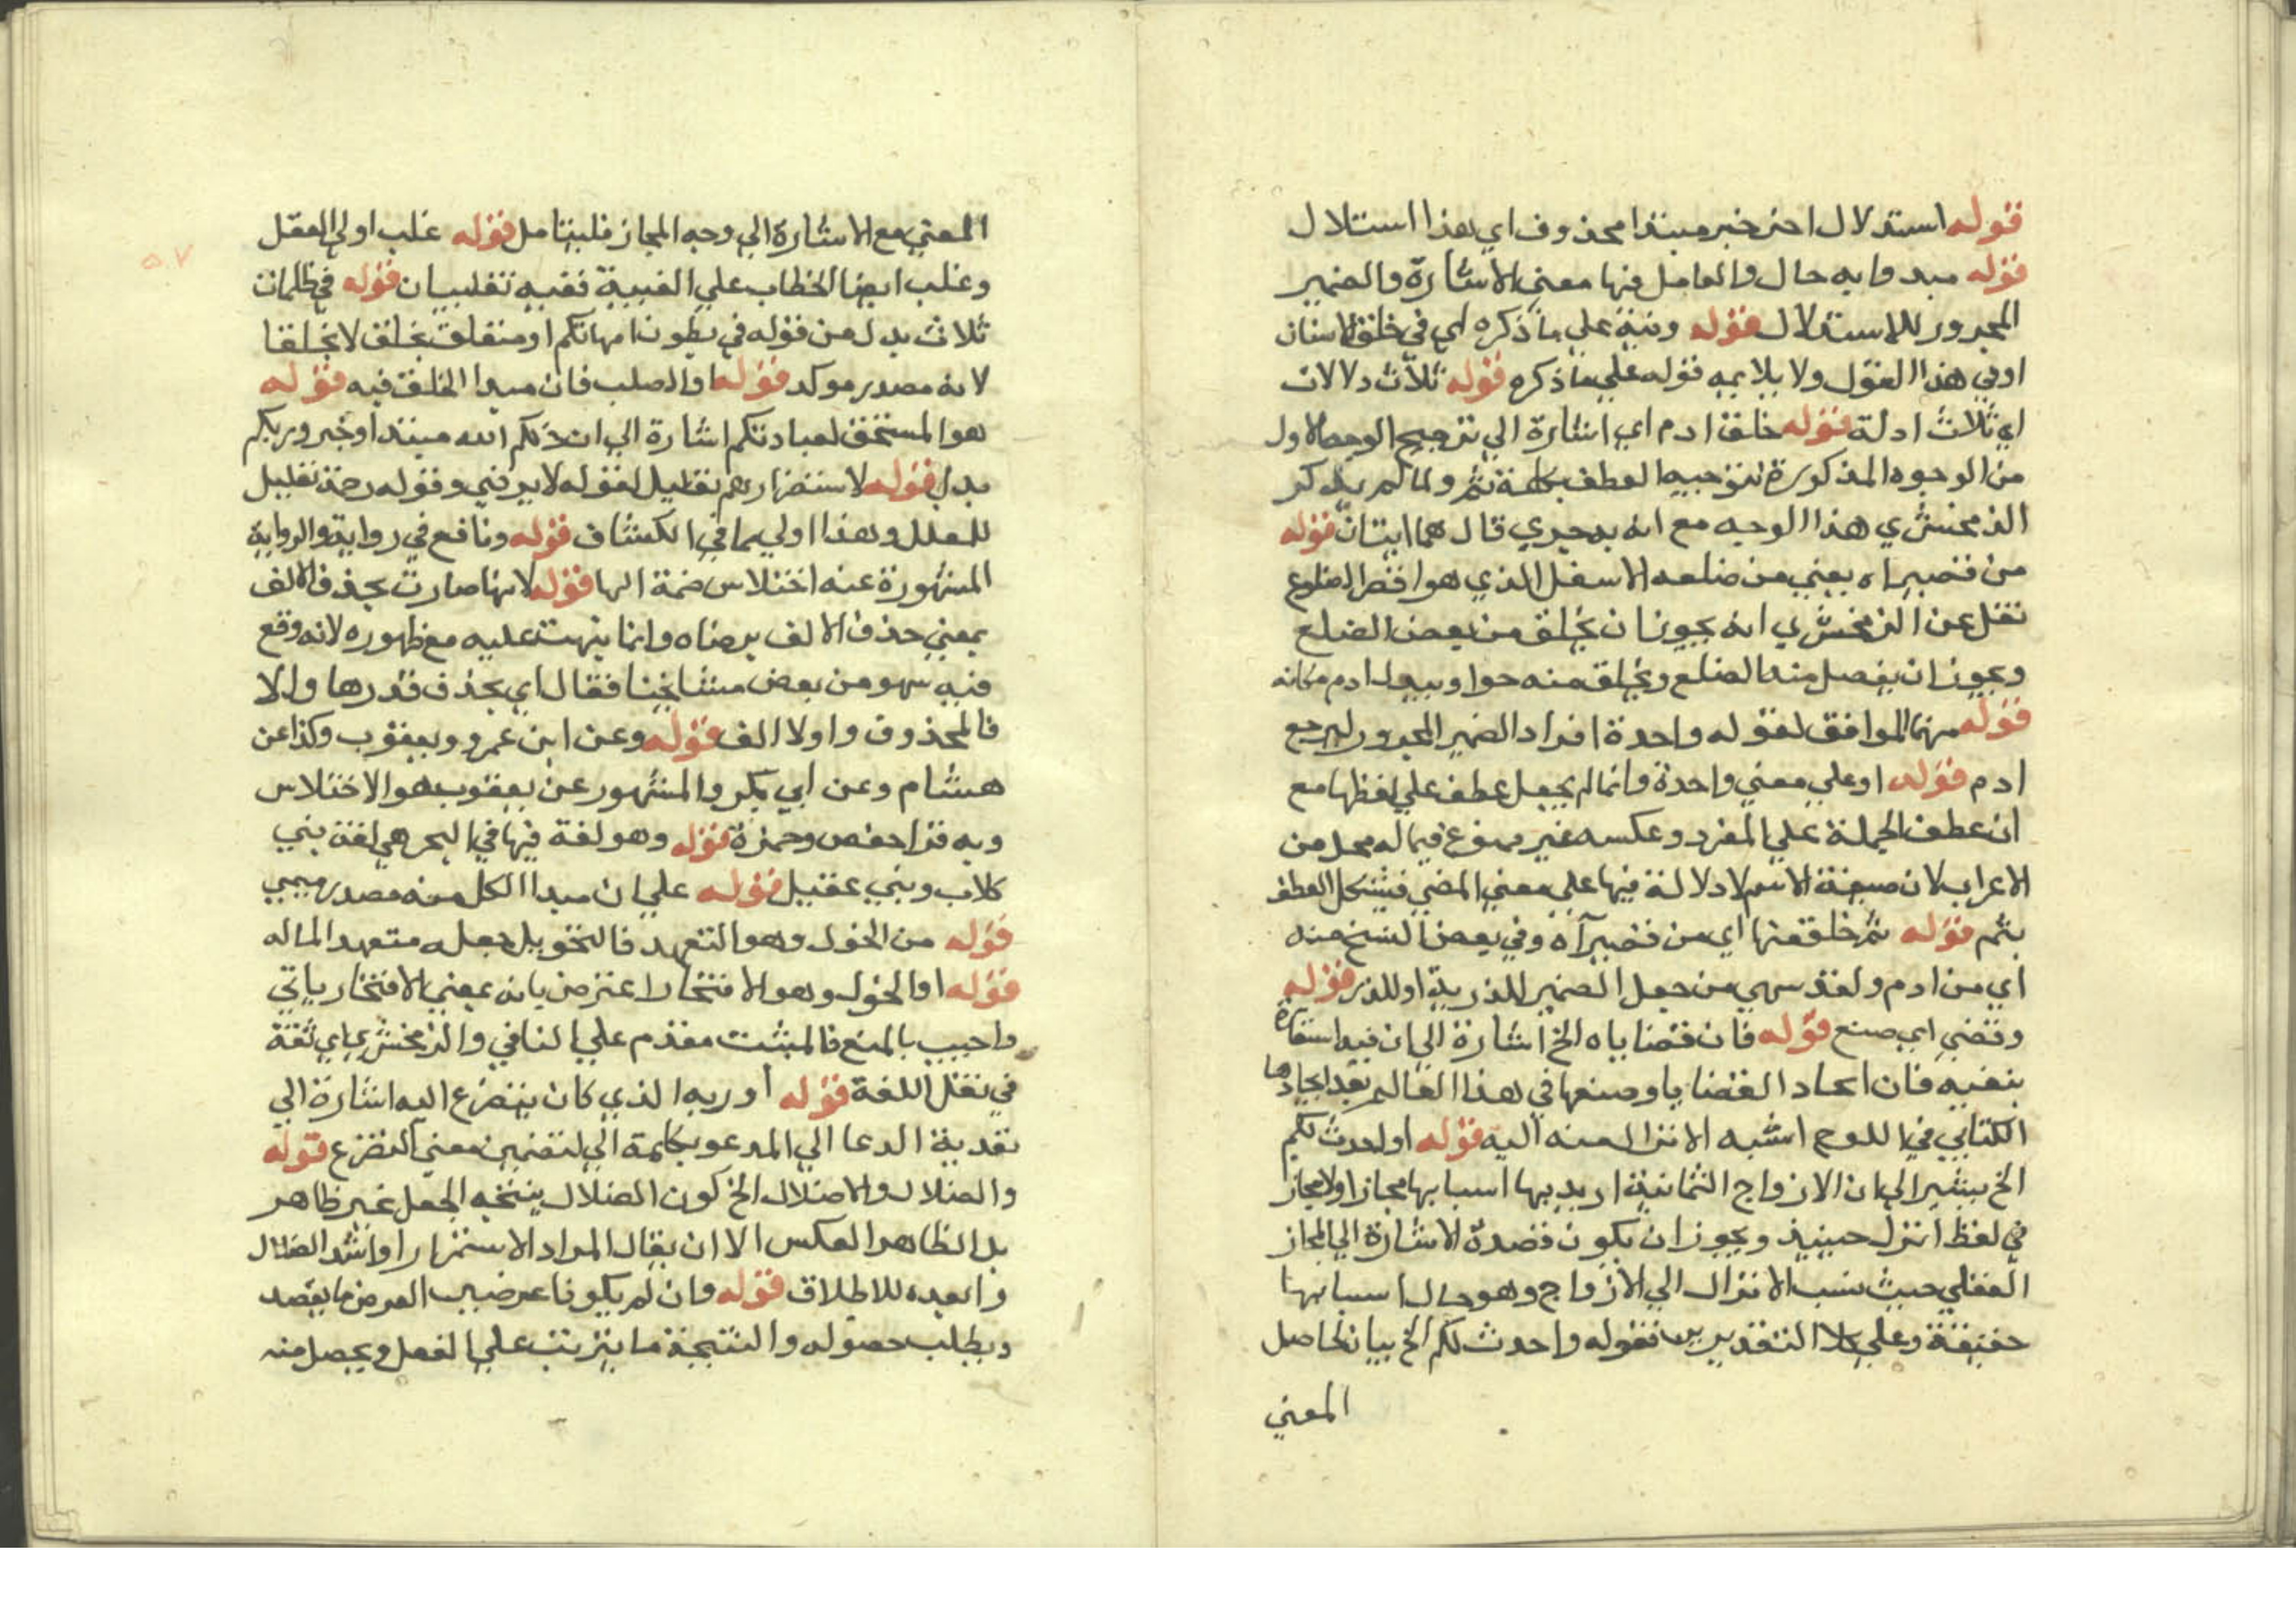 قوله استدلال اخر خبر مبتدا محذوف اي هذا استلال
قوله مبدوا به حال والعامل فيها معني الاشارة والضمير
المجرور للاستدلال قوله ونبه علي ما ذكره اي في خلق الانسان
اوفي هذا القول ولا يلايمه قوله علي ما ذكره قوله ثلاث دلالات
اي ثلاث ادلة قوله خلق ادم اي اشارة الي ترجيح الوجه الاول
من الوجوه المذكورة لتوجيه العطف بكلمة ثم ولما لم يذكر
الزمخشري هذا الوجه مع انه بدجيري قال هما ايتان قوله
من قصيراه يعني من ضلعه الاسفل الذي هو اقصر الاضلوع
نقل عن الزمخشري انه يجوز ان يخلق من بعض الضلع
ويجوز ان يفصل منه الضلع ويخلق منه حوا ويبدل ادم مكانه
قوله منها الموافق لقوله واحدة افراد الضمير المجرور ليرجع
ادم قوله او علي معني واحدة وانما لم يجعل عطف علي لفظها مع
ان عطف الجملة علي المفرد وعكسه غير ممنوع فيما له محل من
الاعراب لان صيغة الاسم لا دلالة فيها علي معني المضي فيشكل العطف
بثم قوله ثم خلقه منها اي من قصيرآه وفي بعض النسخ منه
اي من ادم ولقد سهي من جعل الضمير للذرية او للذر قوله
وقضي اي صنع قوله فان قضاياه الخ اشارة الي ان فيه استعارة
بتعيه فان ايجاد القضايا وصنعها في هذا العالم بعد ايجادها
الكتابي في اللوح اشبه الانزال منه اليه قوله اواحدث لكم
الخ يشير الي ان الازواج الثمانية اريد بها اسبابها مجازا ولا مجاز
في لفظ انزل حينيذ ويجوز ان يكون قصده الاشارة الي المجاز
العقلي حيث نسب الانزال الي الازواج وهو حال اسبابها
حقيقة وعلي كلا التقديرين فقوله واحدث لكم الخ بيان لحاصل
المعني
المعني مع الاشارة الي وجه المجاز فليتامل قوله غلب اولي العقل
وغلب ايضا الخطاب علي الغيبة ففيه تغليبان قوله في ظلمات
ثلاث بدل من قوله في بطون امهاتكم او متعلق بخلق لا بخلقا
لانه مصدر موكد قوله والصلب فان مبدا الخلق فيه قوله
هو المستحق لعبادتكم اشارة الي ان ذلكم الله مبتدا وخبر وربكم
بدل قوله لاستضرارهم تعليل لقوله لا يرضي وقوله رحمة تعليل
للمعلل وهذا اولي مما في الكشاف قوله ونافع في رواية والرواية
المشهورة عنه اختلاس ضمة الها قوله لانها صارت بحذف الالف
يعني حذف الالف يرضاه وانما ينهت عليه مع ظهوره لانه وقع
فيه سهو من بعض مشايخنا فقال اي بحذف قدرها والا
فالمحذوف واولا الف قوله وعن ابن عمرو ويعقوب وكذا عن
هشام وعن ابي بكر والمشهور عن يعقوب هو الاختلاس
وبه قرا حفص وحمزة قوله وهو لغة فيها في البحر هي لغة بني
كلاب وبني عقيل قوله علي ان مبدا الكل منه مصدر ميمي
قوله من الخول وهو التعهد فالتخويل جعله متعهد الماله
قوله او الخول وهو الافتخار اعترض بانه بمعني الافتخار ياتي
واجيب بالمنع فالمثبت مقدم علي النافي والزمخشري اي ثقة
في نقل اللغة قوله أو ربه الذي كان يتضرع اليه اشارة الي
تعدية الدعا الي المدعو بكلمة الي لتضمين معني التضرع قوله
والضلال والاضلال الخ كون الضلال ينتجه الجعل غير ظاهر
بل الظاهر العكس الا ان يقال المراد الاستمرار او اشد الضلال
وابعده للاطلاق قوله وان لم يكونا عرضيين العرض ما يقصد
ويطلب حصوله والنتيجة ما يترتب علي الفعل ويحصل منه